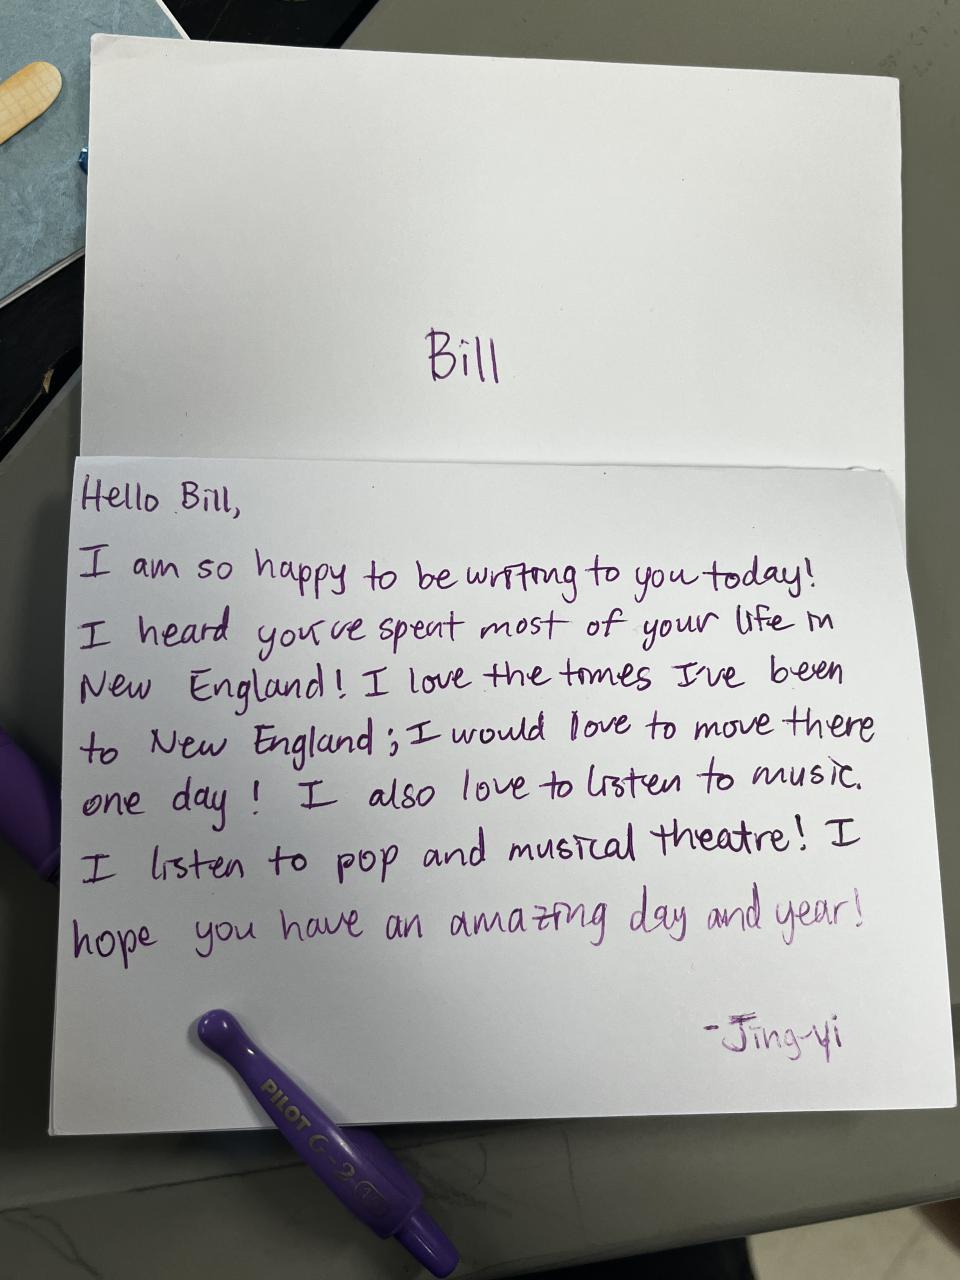 Bill
Hello Bill,
I am so happy to be writing to you today!
I heard you've spent most of your life in
New England! I love the times I've been
to New England; I would love to move there
one day! I also love to listen to music.
I listen to pop and musical theatre! I
hope you have an amazing day and year!
-Jing-yi
PILOT G-2